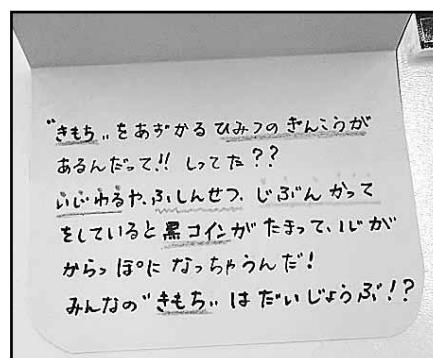 "きもち„をあずかるひみつのぎんこうが
あるんだって!! しってた??
いじわるや、ふしんせつ、じぶんかって
をしていると黒コインがたまって、心が
からっぽになっちゃうんだ!
みんなの"きもち„はだいじょうぶ!?